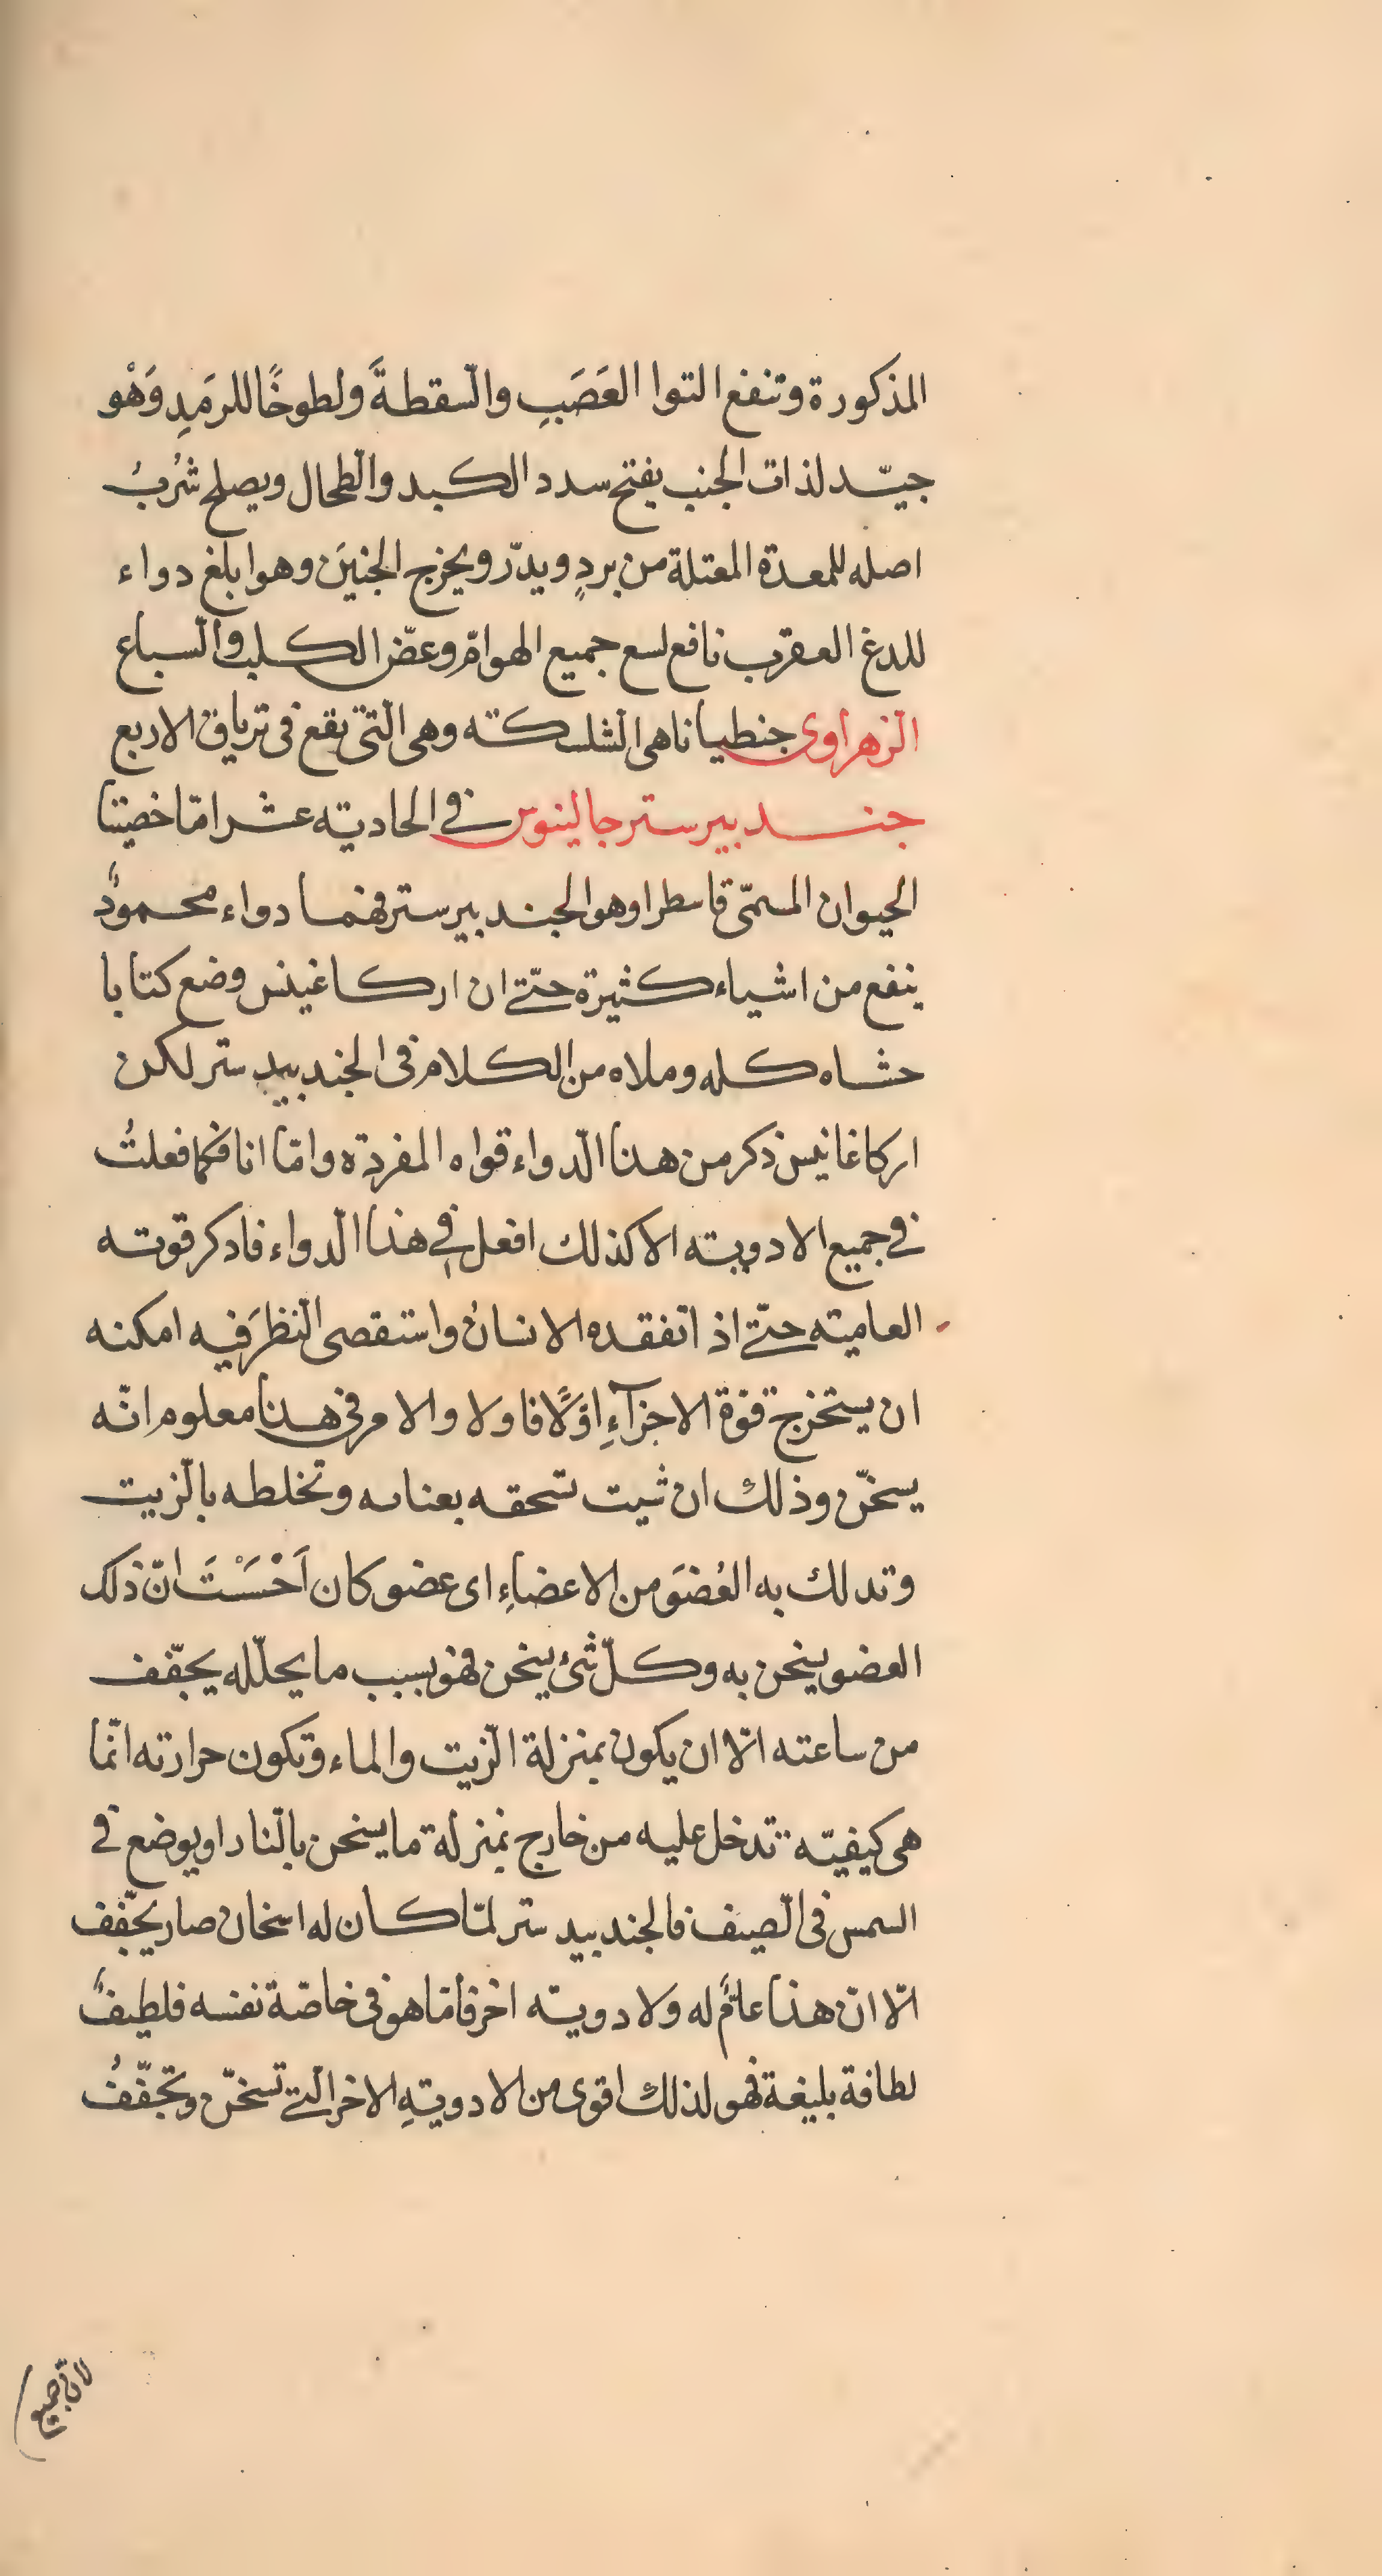 المذكورة وتنفع التوا العَصَبِ والّسقطةَ ولطوخًا للرمَدِ وَهْو
جيّد لذات الجنب يفتح سدد الكبد والّطحال ويصلح شُربُ
اصله للمعدة المعتلة من بردٍ ويدّر ويخرج الجنينَ وهو ابلغ دواء
للدغ العقرب نافع لسع جميع الهوامّ وعضّ الكلب والّسباع
الّزهراوى جنطيانا هى الّشلسكته وهى الّتى يقع فى ترياق الاربع
جند بيرستر جالينوس فى الحاديته عشر امّا خصيتا
الحيوان المسمّى قاسطرا وهو الجند بيرستر فهما دواء محمودٌ
ينفع من اشياء كثيرة حتّى ان اركاغينس وضع كتابا
حشاه كله وملاه من الكلام فى الجند بيد ستر لكن
اركاغانيس ذكر من هذا الّدواء قواه المفردة وامّا انا فكما فعلتُ
فى جميع الادويته الا كذلك افعل فى هذا الّدواء فاذكر قوته
العاميته حتّى اذا تفقده الانسانُ واستقصى الّنظرَ فيه امكنه
ان يستخرج قوّة الاجزآءِ اوّلًا فاولا والامر فى هذا معلوم انّه
يسخّن وذلك ان شيت تسحقه بعنايه وتخلطه بالّزيت
وتدلك به العُضوَ من الاعضاءِ اى عضو كان اَحْسَسْتَ انّ ذلك
العضو يسخن به وكلّ شئ يسخن فهو بسبب ما يحلّله يجفّف
من ساعته الّا ان يكون بمنزلة الّزيت والماء وتكون حرارته انّما
هى كيفيّته تدخل عليه من خارج بمنزلة ما يسخن بالّنار او يوضع فى
الشمس فى الّصيف فالجند بيد ستر لمّا كان له اسخان صار يجفّف
الّا انّ هذا عامٌّ له ولادويته اخر فأمّا هو فى خاصّة نفسه فلطيفٌ
لطافة بليغة فهو لذلك اقوى من الادويتهِ الاخر الّتى تسخّن وتجفّفُ
لان جميع